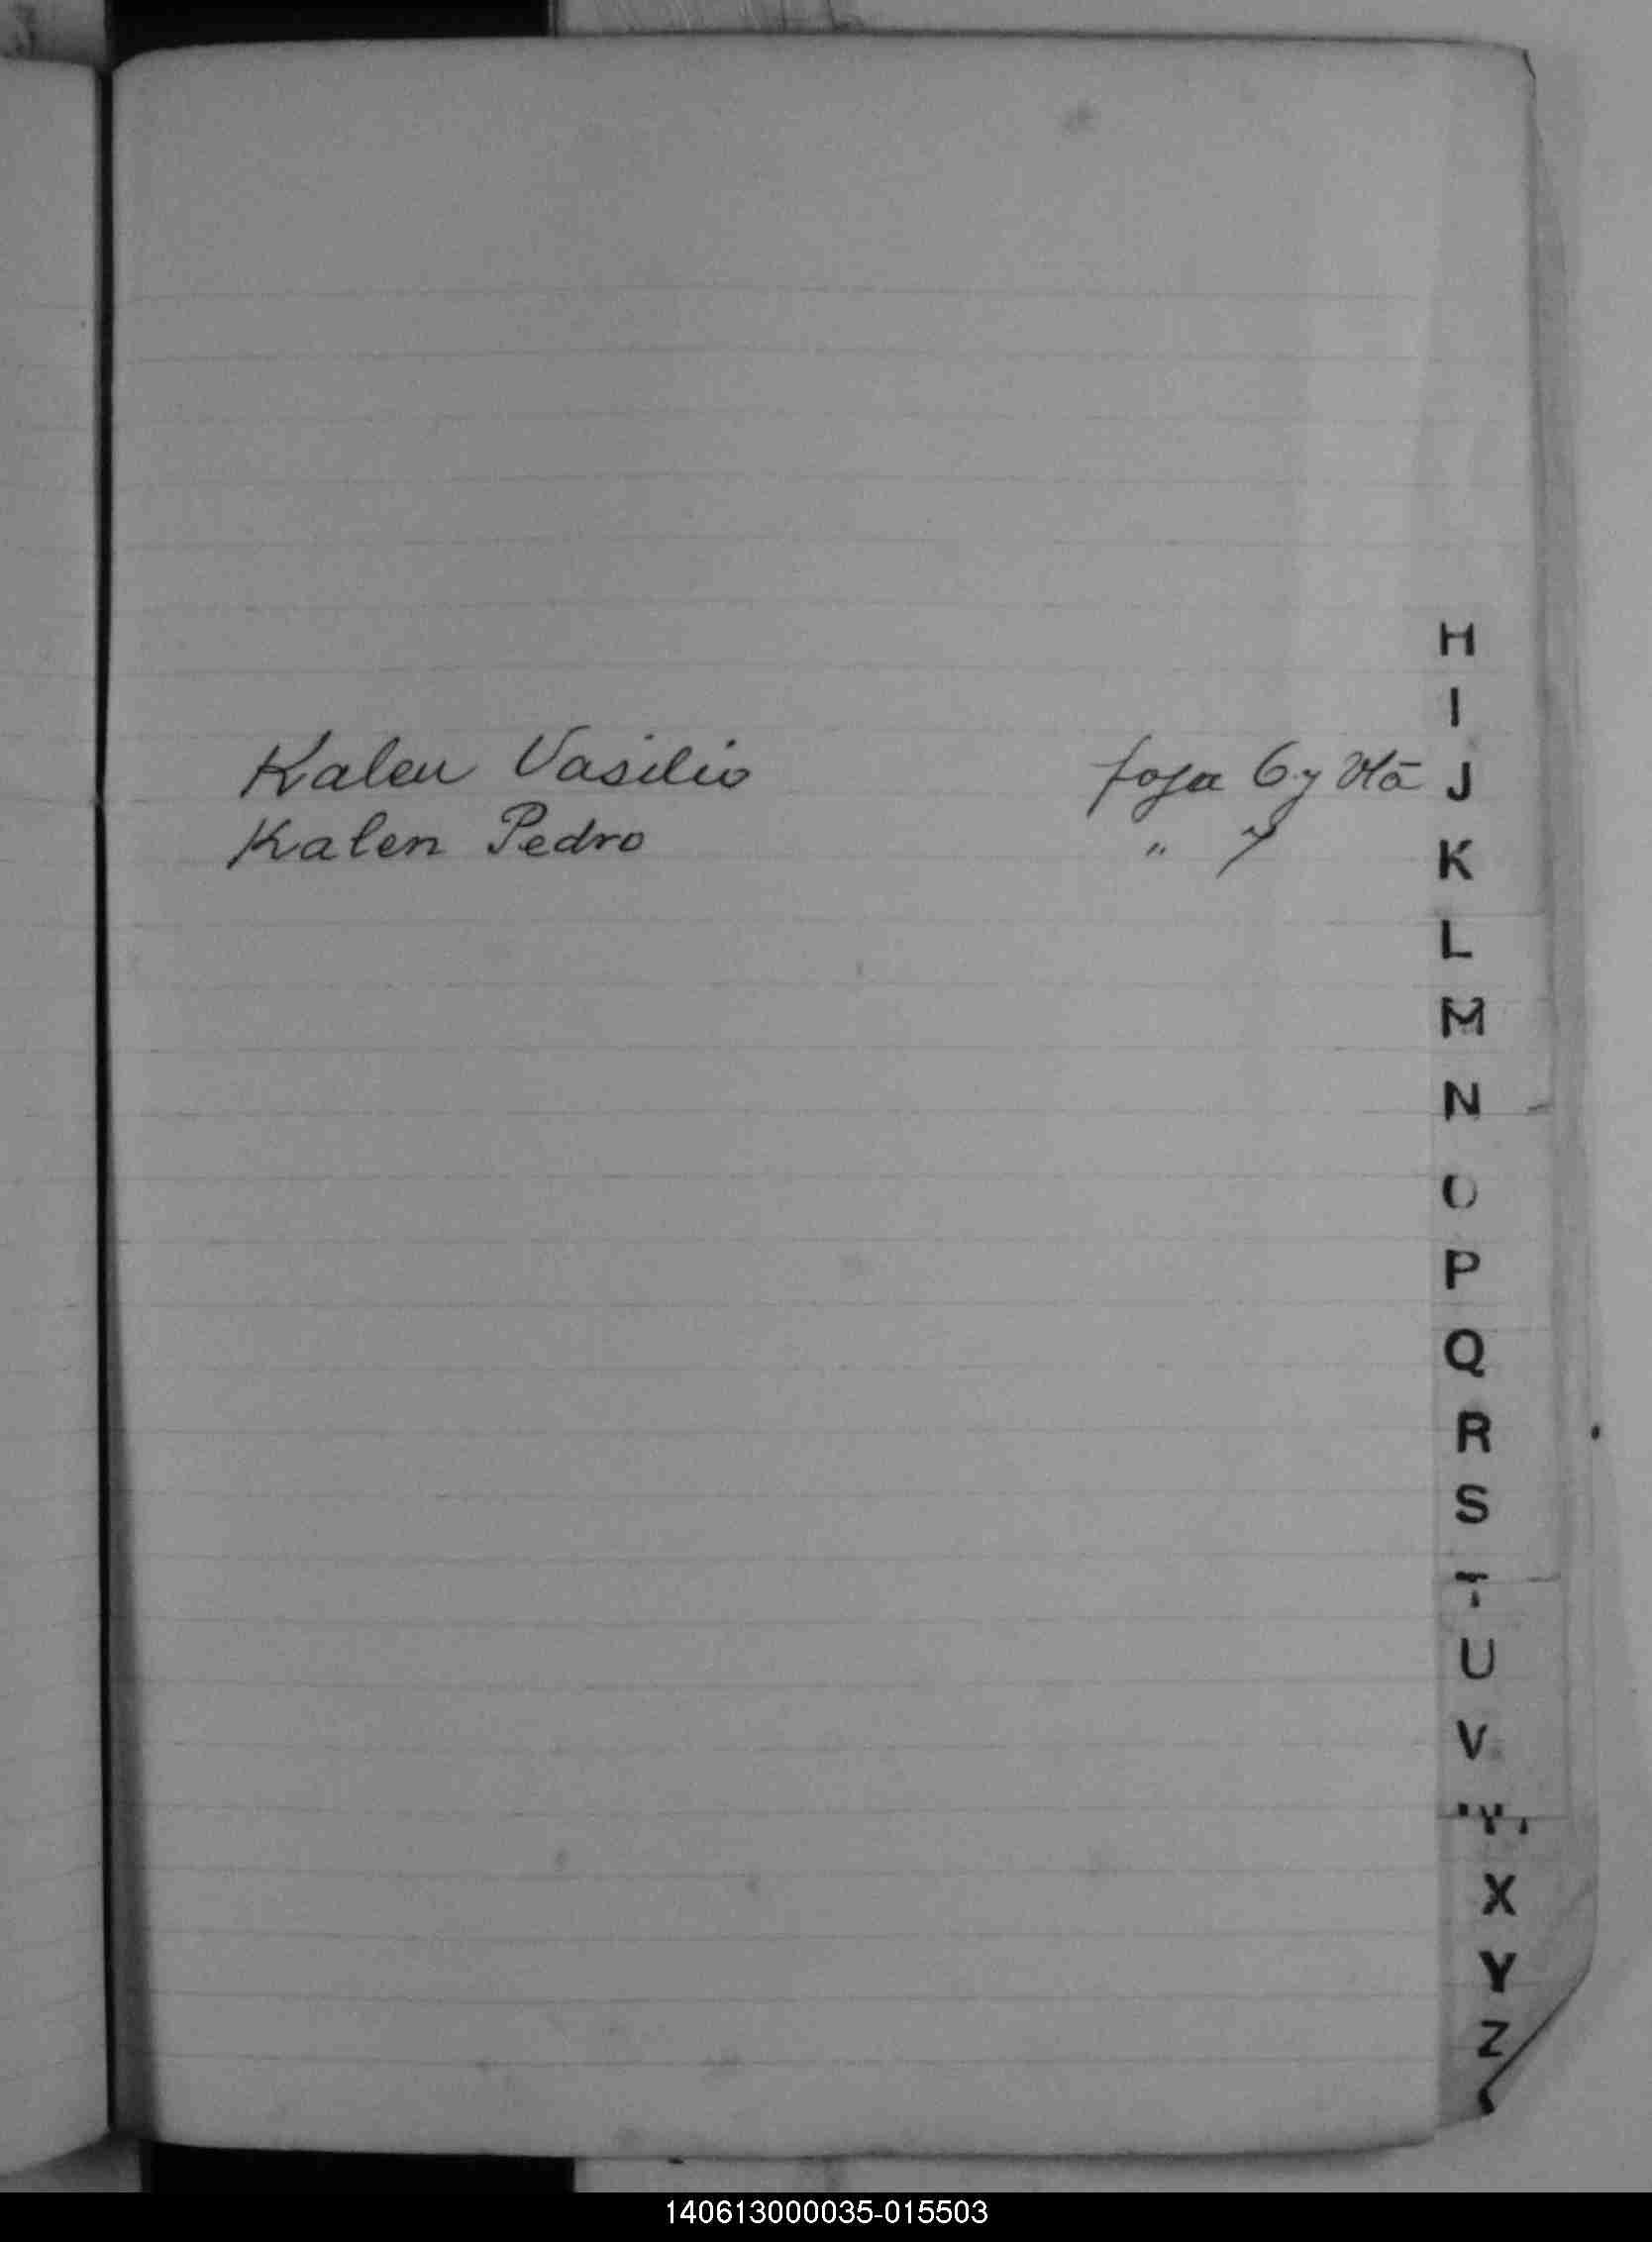 Kalen Vasilio foja 6 y Vtā
Kalen Pedro " 7
H
I
J
K
L
M
N
O
P
Q
R
S
T
U
V
W
X
Y
Z
140613000035-015503